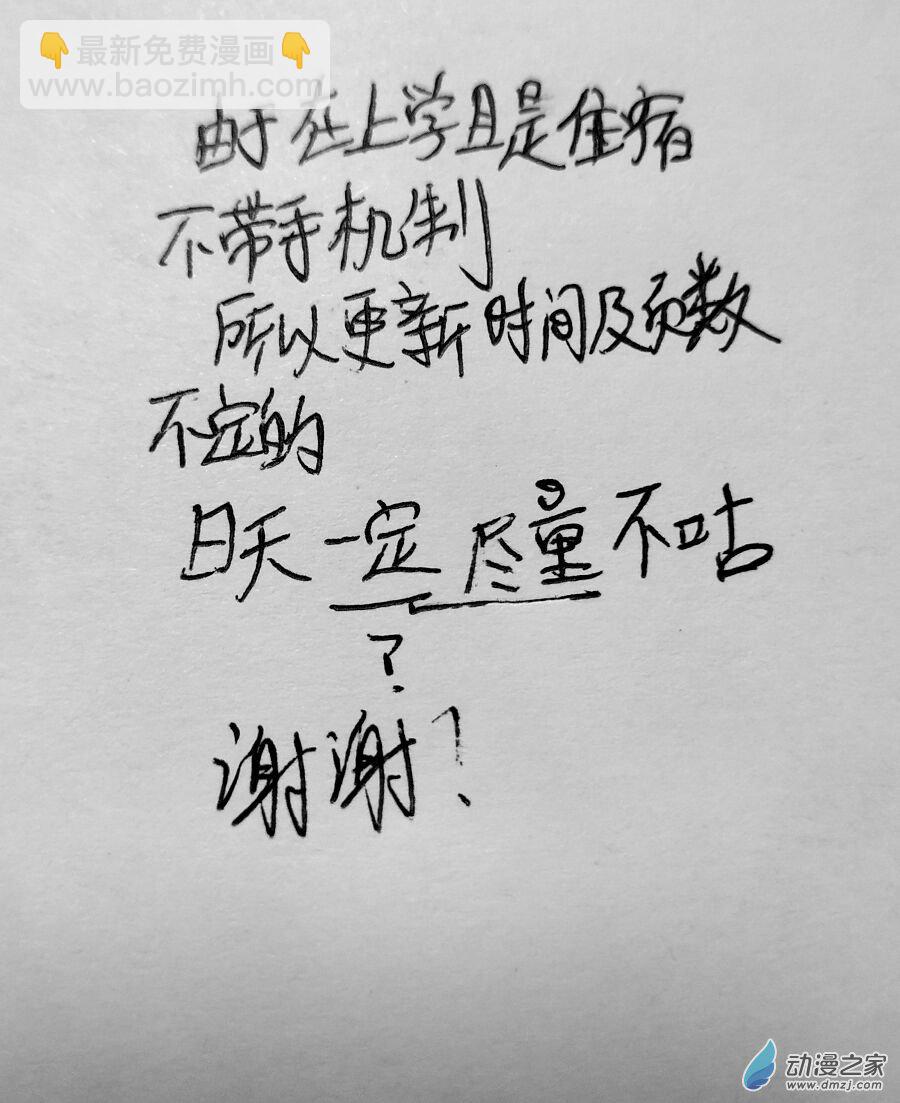 👇最新免费漫画👇
www.baozimh.com
由于在上学且是住宿
不带手机制
所以更新时间及页数
不定的
日天一定尽量不咕
?
谢谢!
动漫之家
www.dmzj.com